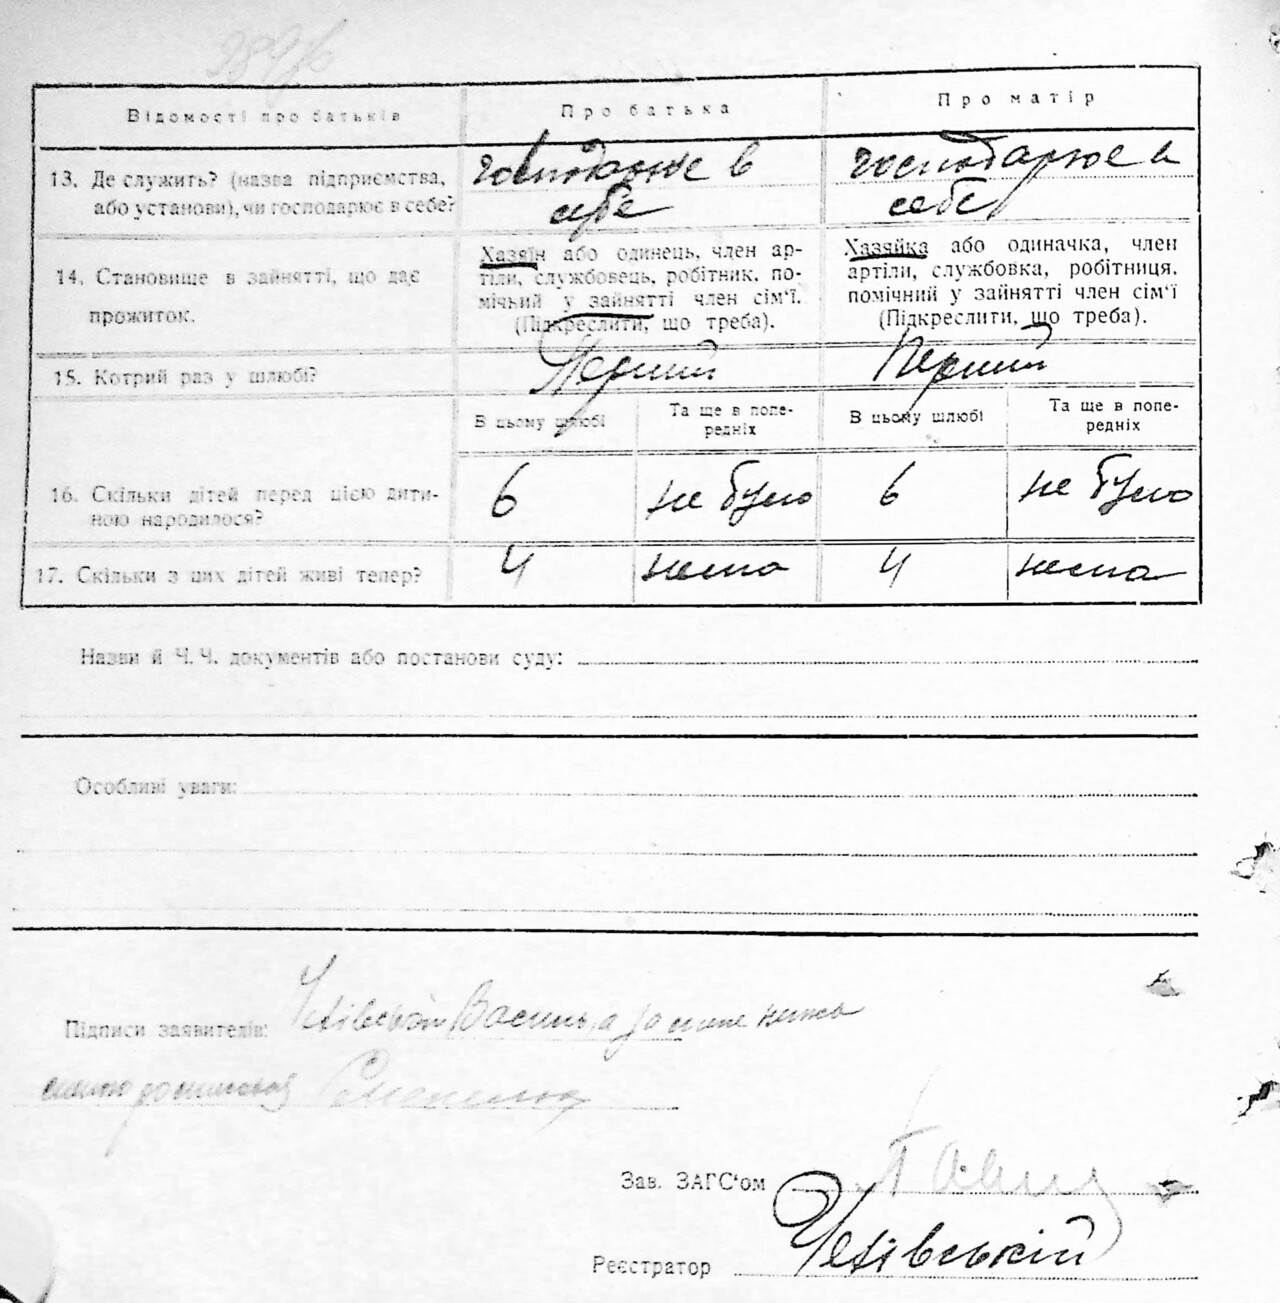 Відомості про батьків
Про батька
Про матір
13. Де служить? (назва підприємства,
або установи), чи господарює в себе?
господарює в
себе
господарює в
себе
14. Становище в зайнятті, що дає
прожиток.
Хазяїн або одинець, член ар-
тіли, службовець, робітник, по-
мічний у зайнятті член сім'ї.
(Підкреслити, що треба).
Хазяйка або одиначка, член
артіли, службовка, робітниця,
помічний у зайнятті член сім'ї
(Підкреслити, що треба).
15. Котрий раз у шлюбі?
Перший
Перший
В цьому шлюбі
Та ще в попе-
редніх
В цьому шлюбі
Та ще в попе-
редніх
16. Скільки дітей перед цією дити-
ною народилося?
6
не було
6
не було
17. Скільки з цих дітей живі тепер?
4
нема
4
нема
Назви й Ч. Ч. документів або постанови суду:
Особливі уваги:
Підписи заявителів: Василь, а за
Зав. ЗАГС'ом
Реєстратор